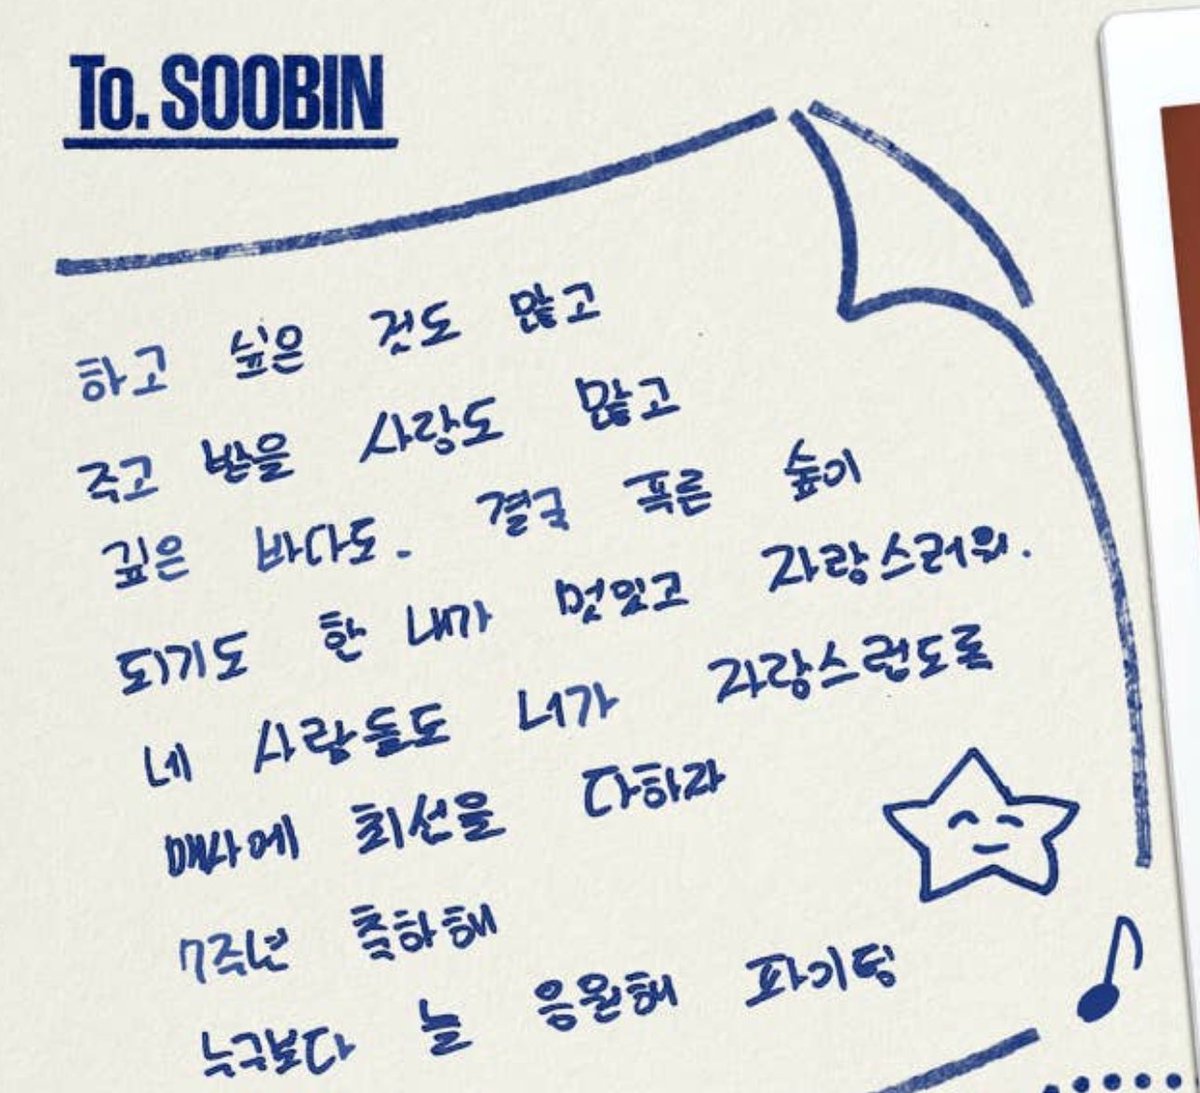 To. SOOBIN
하고 싶은 것도 많고
주고 받을 사랑도 많고
깊은 바다도. 결국 푸른 숲이
되기도 한 내가 멋있고 자랑스러워.
네 사랑들도 너가 자랑스럽도록
매사에 최선을 다하라
7주년 축하해
누구보다 늘 응원해 파이팅